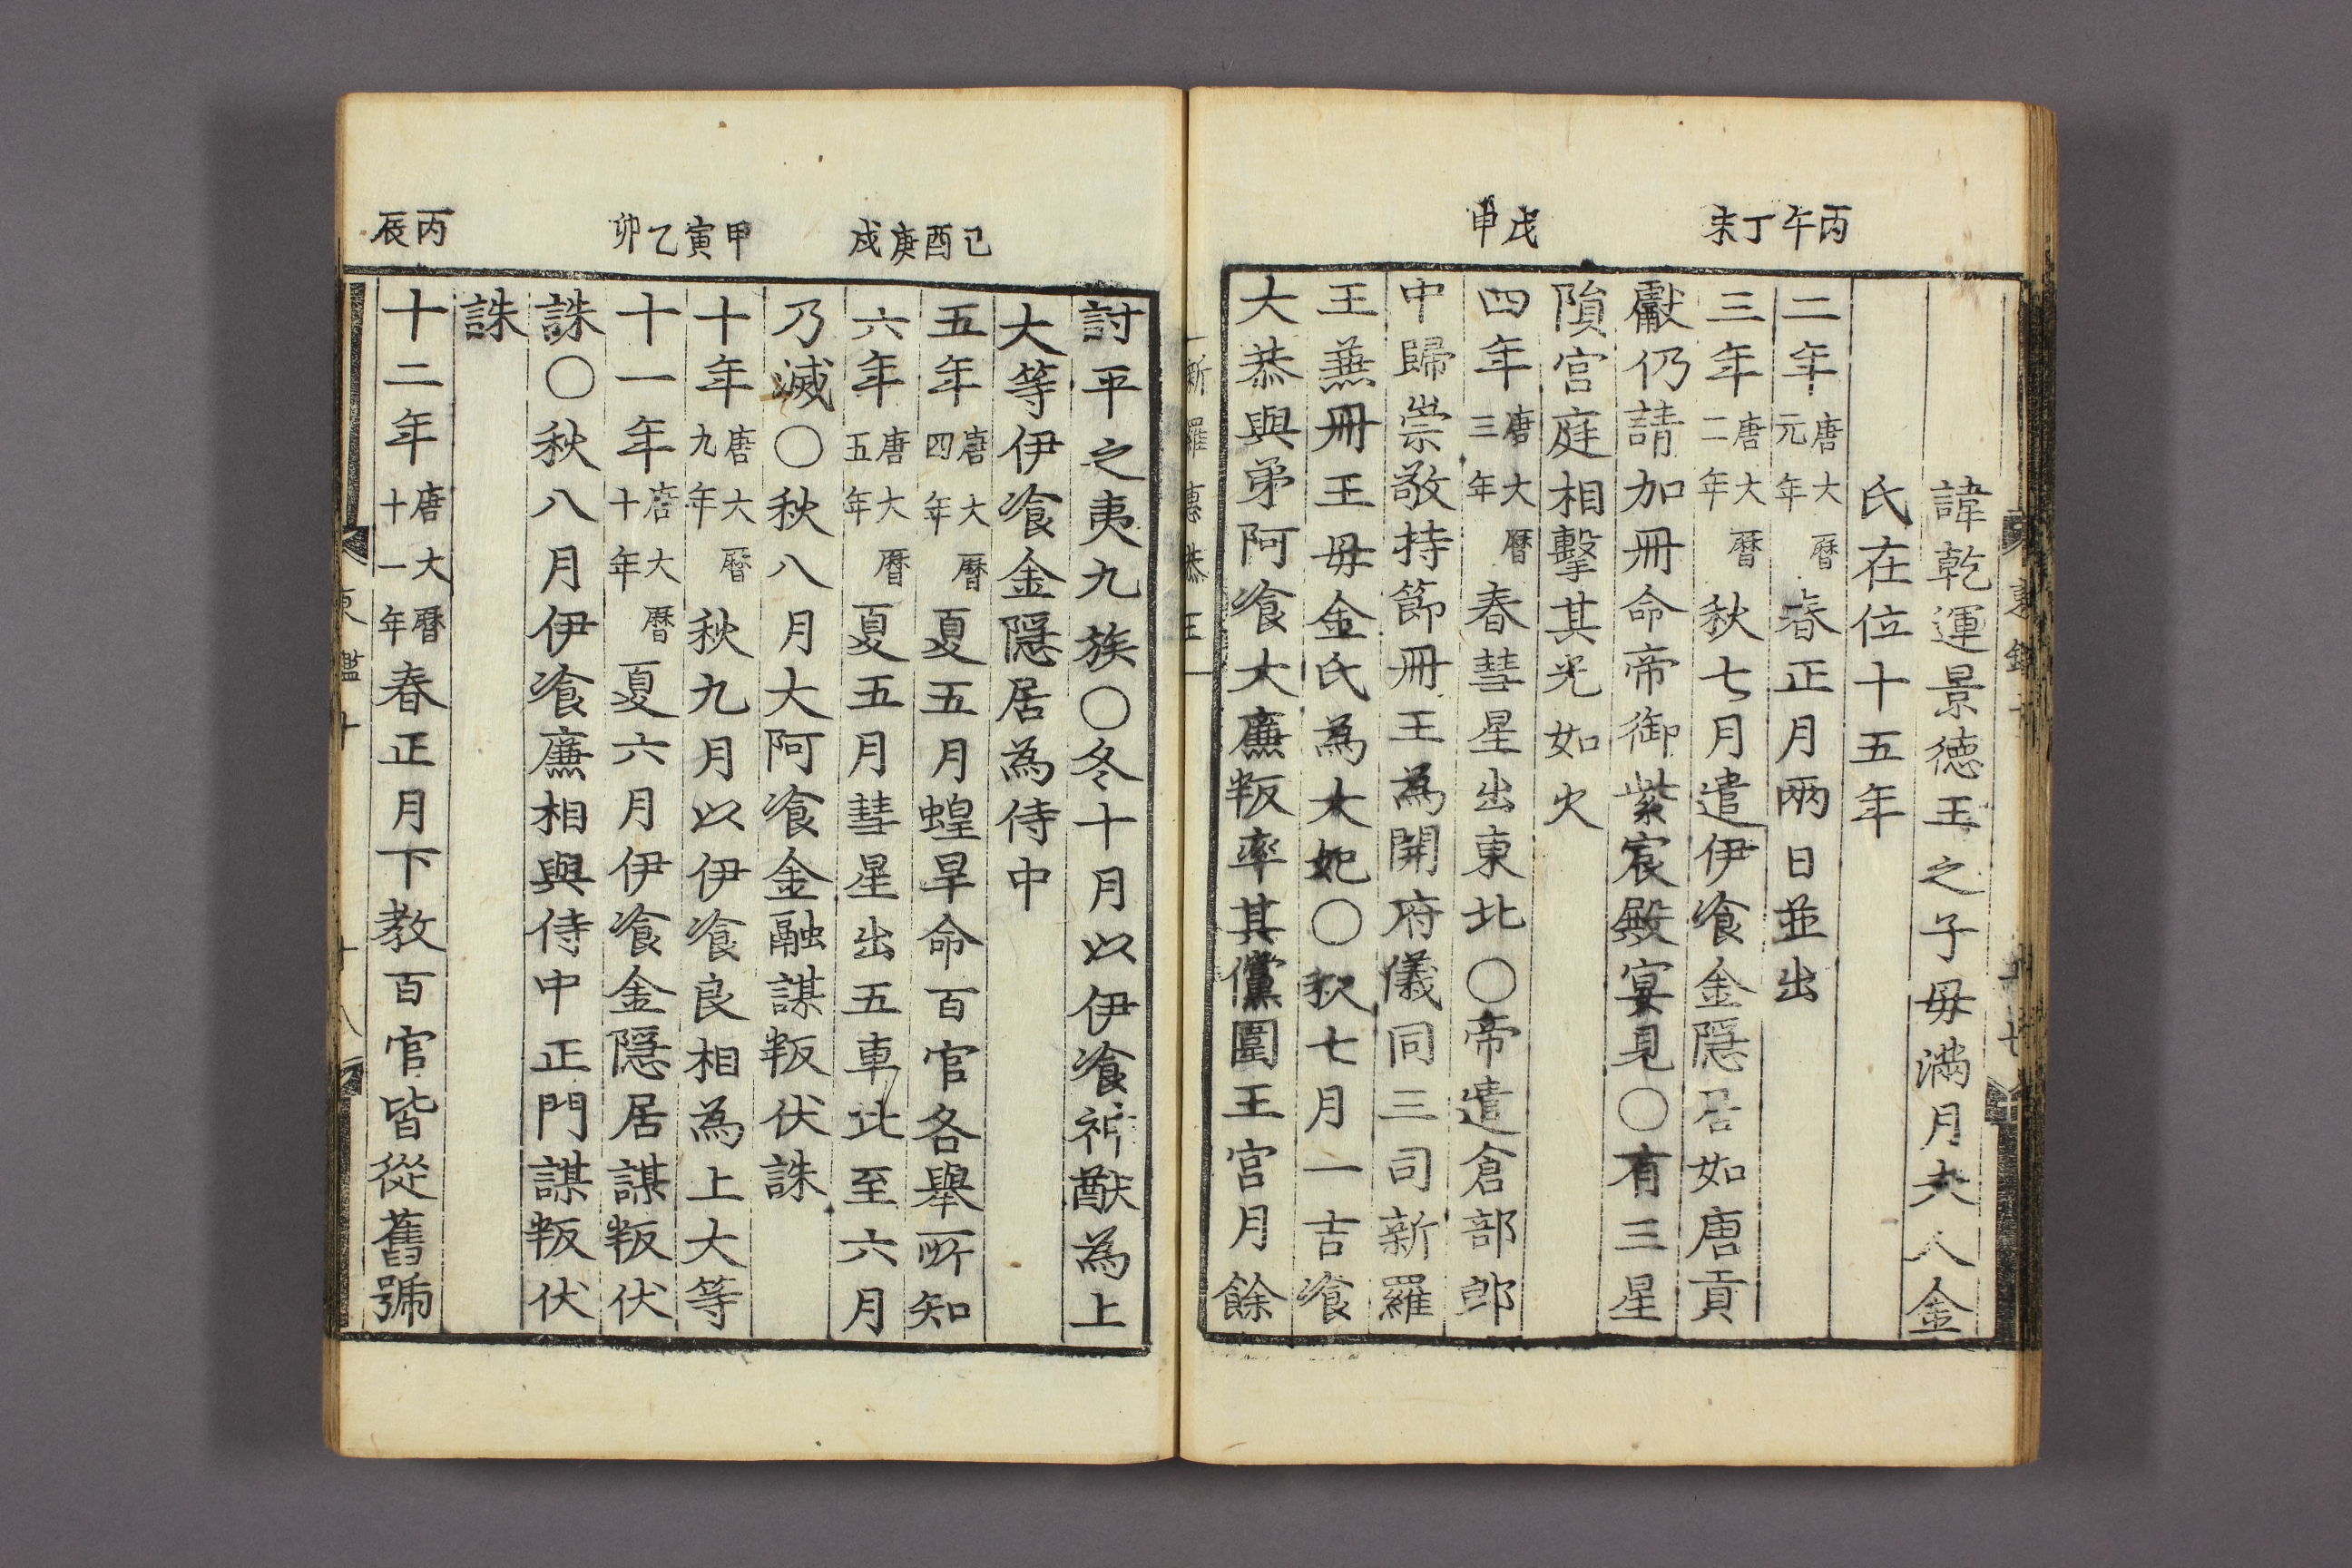 丙午
丁未
戊申
諱乾運景徳王之子毋滿月夫人金
氏在位十五年
二年唐大曆元年春正月兩日並出
三年唐大曆二年秋七月遣伊飡金隱居如唐貢
獻仍請加冊命帝御紫宸殿宴見〇有三星
隕宫庭相擊其光如火
四年唐大曆三年春彗星出東北〇帝遣倉部郎
中歸崇敬持節冊王為開府儀同三司新羅
王兼冊王毋金氏為大妃〇秋七月一吉飡
大恭與弟阿飡大廉叛率其儻圍王宫月餘
新羅惠恭王
己酉
庚戌
甲寅
乙卯
丙辰
討平之夷九族〇冬十月以伊飡神猷為上
大等伊飡金隱居為侍中
五年唐大曆四年夏五月蝗旱命百官各舉所知
六年唐大曆五年夏五月彗星出五車北至六月
乃滅〇秋八月大阿飡金融謀叛伏誅
十年唐大曆九年秋九月以伊飡良相為上大等
十一年唐大曆十年夏六月伊飡金隱居謀叛伏
誅〇秋八月伊飡廉相與侍中正門謀叛伏
誅
十二年唐大曆十一年春正月下教百官皆從舊號
東鑑十
十八